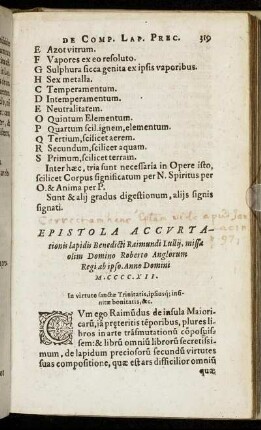 DE COMP. LAP. PREC. 319
E Azot vitrum.
F Vapores ex eo resoluto.
G Sulphura sicca genita ex ipsis vaporibus.
H Sex metalla.
C Temperamentum.
D Intemperamentum.
E Neutralitatem.
O Quintum Elementum.
P Quartum scil. ignem, elementum.
Q Tertium, scilicet aerem.
R Secundum, scilicet aquam.
S Primum, scilicet terram.
Inter hæc, tria sunt necessaria in Opere isto,
scilicet Corpus significatum per N. Spiritus per
O. & Anima per P.
Sunt & alij gradus digestionum, alijs signis
signati.
EPISTOLA ACCVRTA-
tionis lapidis Benedicti Raimundi Lullij, missa
olim Domino Roberto Anglorum
Regi ab ipso. Anno Domini
M.CCCC.XII.
In virtute sanctæ Trinitatis, ipsiusq; infi-
nitæ bonitatis, &c.
CVm ego Raimũdus de insula Maiori-
carũ, iã præteritis tẽporibus, plures li-
bros in arte trãsmutationũ cõposuis-
sem: & librũ omniũ librorũ secretissi-
mum, de lapidum preciosorũ secundũ virtutes
suas compositione, quæ est ars difficilior omniũ
quæ